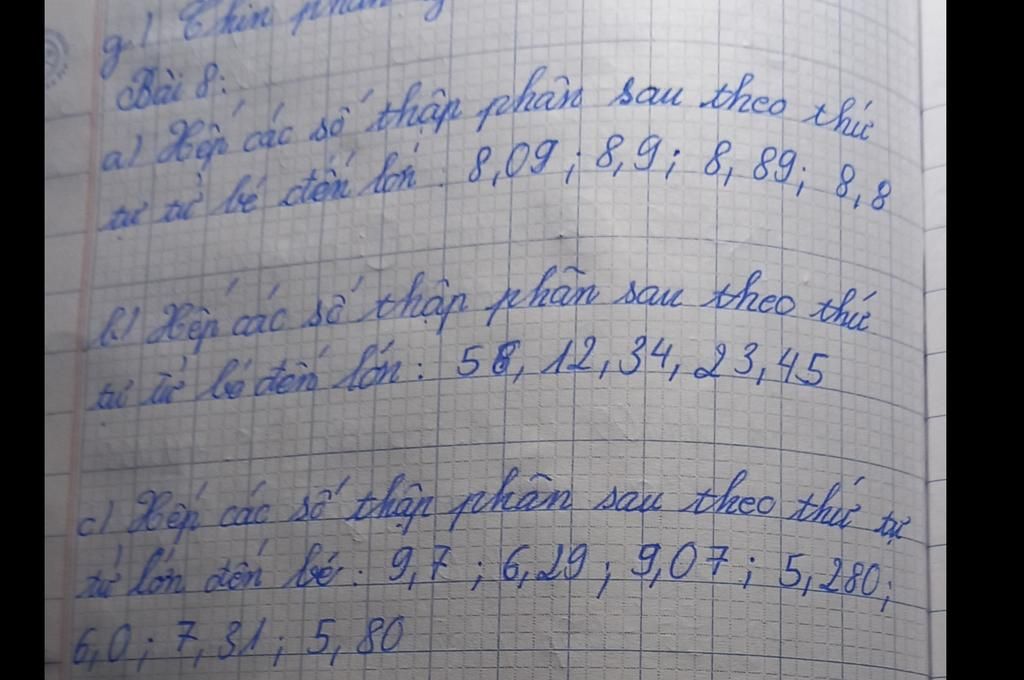 g) Chín phần
Bài 8:
a) Xếp các số thập phân sau theo thứ
tự từ bé đến lớn: 8,09; 8,9; 8,89; 8,8
b) Xếp các số thập phân sau theo thứ
tự từ bé đến lớn: 56, 12, 34, 23, 45
c) Xếp các số thập phân sau theo thứ tự
từ lớn đến bé: 9,7; 6,29; 9,07; 5,280;
6,0; 7,31; 5,80